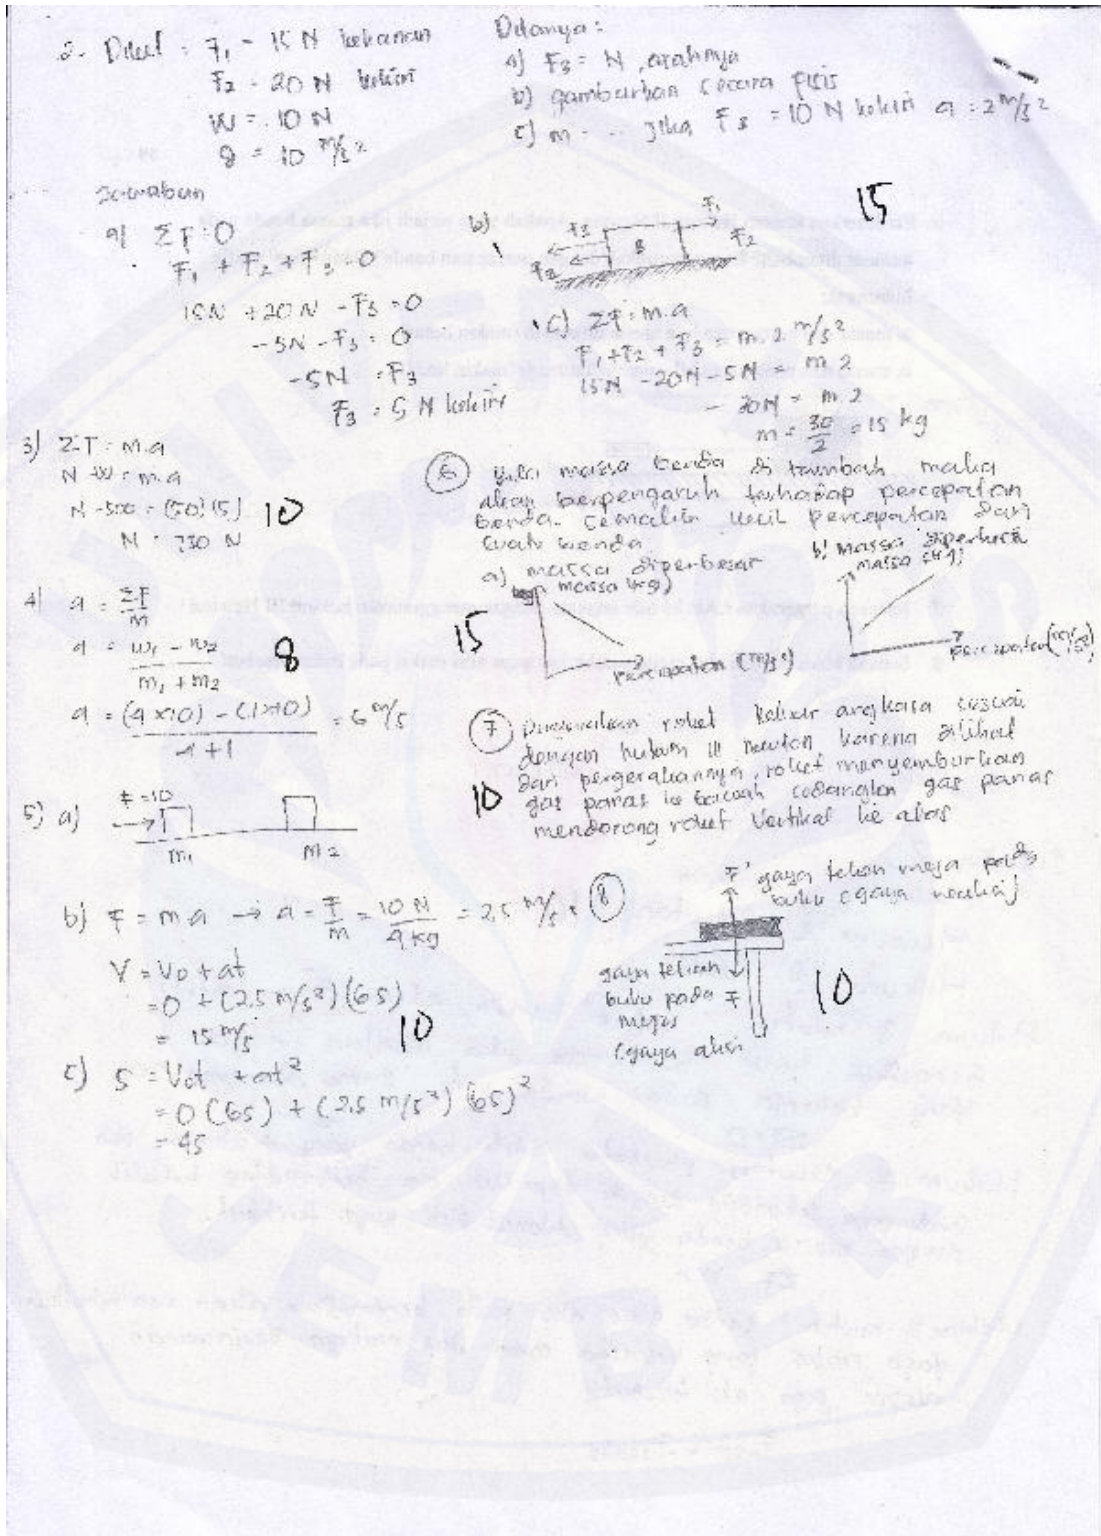 2. Diket : F1 = 15 N kekanan
F2 = 20 N kekiri
W = 10 N
g = 10 m/s2
Ditanya :
a) F3 = N, arahnya
b) gambarkan secara fisis
c) m = .. jika F3 = 10 N kekiri a = 2 m/s2
Jawaban
a) ΣF = 0
F1 + F2 + F3 = 0
15N + 20N - F3 = 0
-5N - F3 = 0
-5N = F3
F3 = 5 N kekiri
b)
F3
F2
8
F1
F2
15
c) ΣF = m.a
F1 + F2 + F3 = m. 2 m/s2
15N - 20N - 5N = m 2
- 30N = m. 2
m = 30/2 = 15 kg
3) ΣF = m.a
N - W = m.a
N - 500 = (50)(5)
N = 750 N
10
4) a = ΣF/m
a = w1 - w2 / m1 + m2
a = (4 x 10) - (1x10) / 4 + 1 = 6 m/s
8
5) a)
F = 10
m1
m2
b) F = m a → a = F/m = 10 N / 4 kg = 2,5 m/s
V = Vo + at
= 0 + (2,5 m/s2) (6s)
= 15 m/s
10
c) S = Vot + at2
= 0 (6s) + (2,5 m/s2) (6s)2
= 45
6 massa benda di tambah maka
akan berpengaruh terhadap percepatan
benda. Semakin kecil percepatan dari
suatu benda
a) massa diperbesar
massa (kg)
percepatan (m/s2)
b) massa diperkecil
massa (kg)
percepatan (m/s2)
15
7 roket keluar angkasa sesuai
dengan hukum III newton karena dilihat
dari pergerakannya, roket menyemburkan
gas panas ke bawah sedangkan gas panas
mendorong roket vertikal ke atas
10
8
F' gaya tekan meja pada
buku (gaya reaksi)
gaya tekan
buku pada F
meja
(gaya aksi
10
UNIVERSITAS
JEMBER